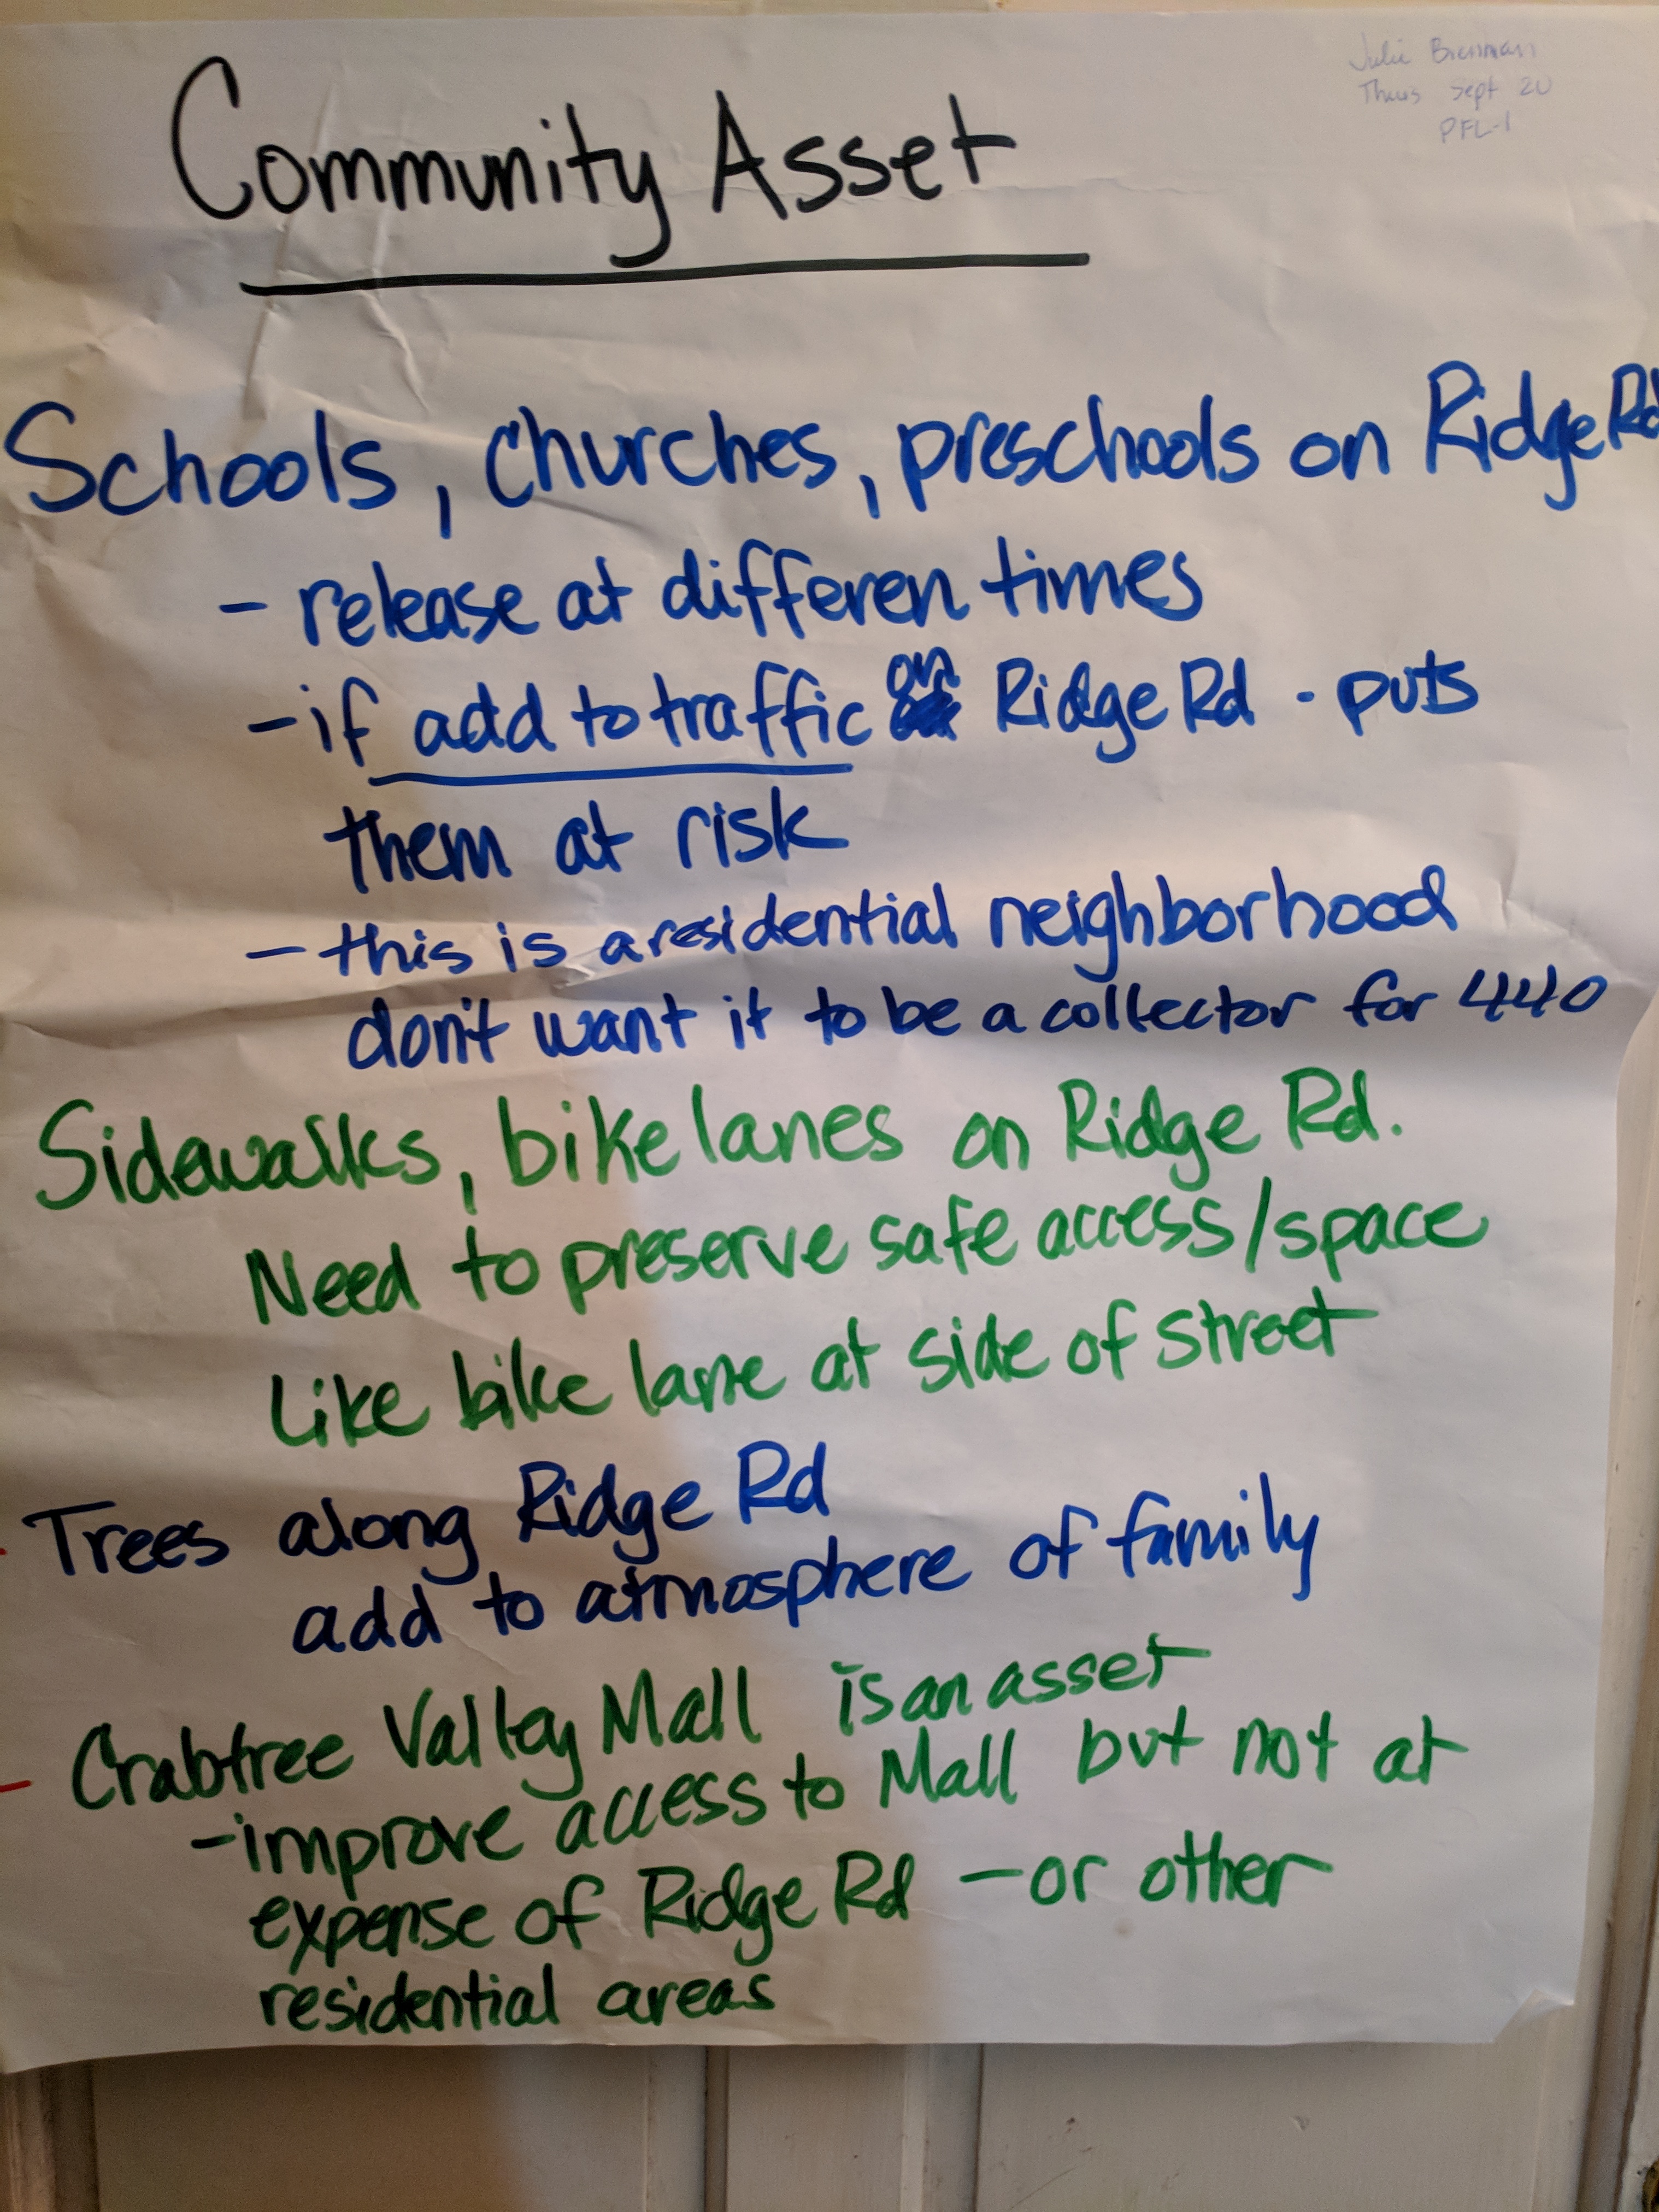 Julie Brennan
Thurs Sept 20
PFL-1
Community Asset
Schools, churches, preschools on Ridge Rd
- release at differen times
- if add to traffic on Ridge Rd - puts
them at risk
- this is a residential neighborhood
don't want it to be a collector for 440
Sidewalks, bike lanes on Ridge Rd.
Need to preserve safe access/space
Like bike lane at side of street
Trees along Ridge Rd
add to atmosphere of family
Crabtree Valley Mall is an asset
- improve access to Mall but not at
expense of Ridge Rd - or other
residential areas